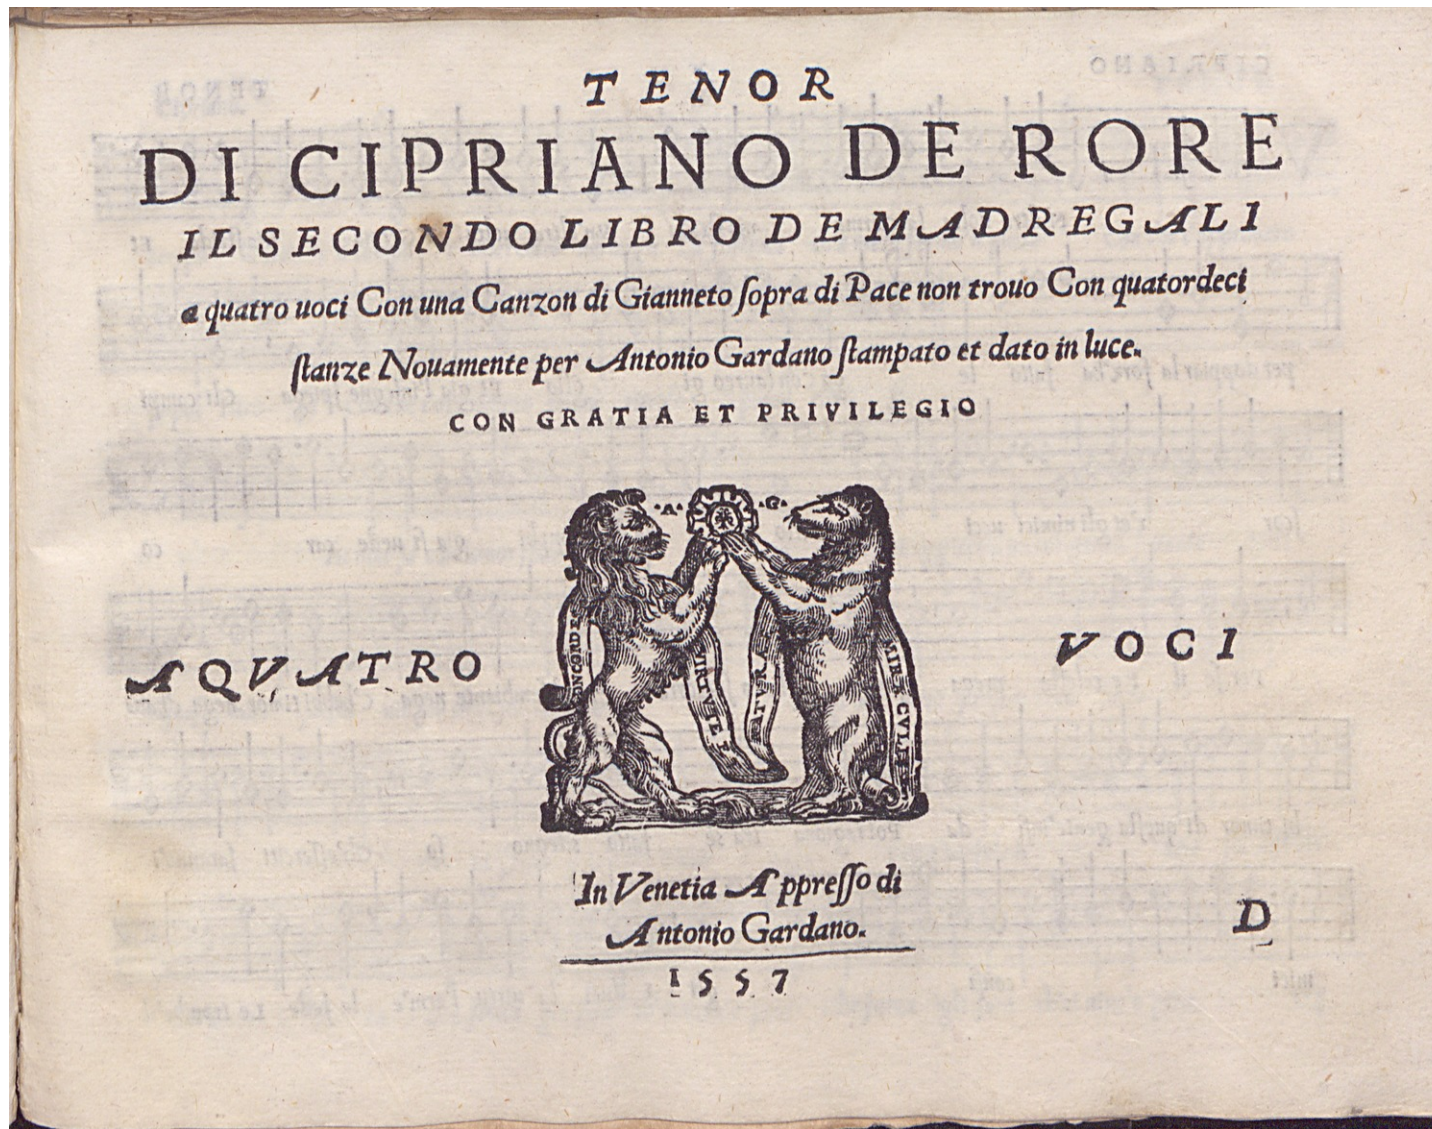 TENOR
DI CIPRIANO DE RORE
IL SECONDO LIBRO DE MADREGALI
a quatro uoci Con una Canzon di Gianneto ſopra di Pace non trouo Con quatordeci
ſtanze Nouamente per Antonio Gardano ſtampato et dato in luce.
CON GRATIA ET PRIVILEGIO
·A· ·G·
VIRTVTE
AQVATRO VOCI
In Venetia Appreſſo di
Antonio Gardano.
D
1557